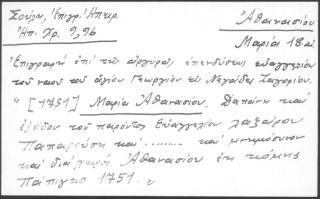 Σούλη, Ἐπιγρ. Ἠπειρ.
Ἠπ. Χρ. 9, 96
Ἀθανασίου
Μαρία 18 αἰ.
Ἐπιγραφή ἐπί τῆς ἀργυρᾶς ἐπενδύσεως εὐαγγελίου
τοῦ ναοῦ τοῦ ἁγίου Γεωργίου τῶν Νεγάδες Ζαγορίου.
" [1751] Μαρία Ἀθανασίου. Δαπάνη καί
ἐξόδου τοῦ παρόντος Εὐαγγελίου λαζάρου
Παπαρούση καί ........ καί μνημόσυνον
καί διά χειρός Ἀθανασίου ἐκ κώμης
Πάπιγκο 1751. "